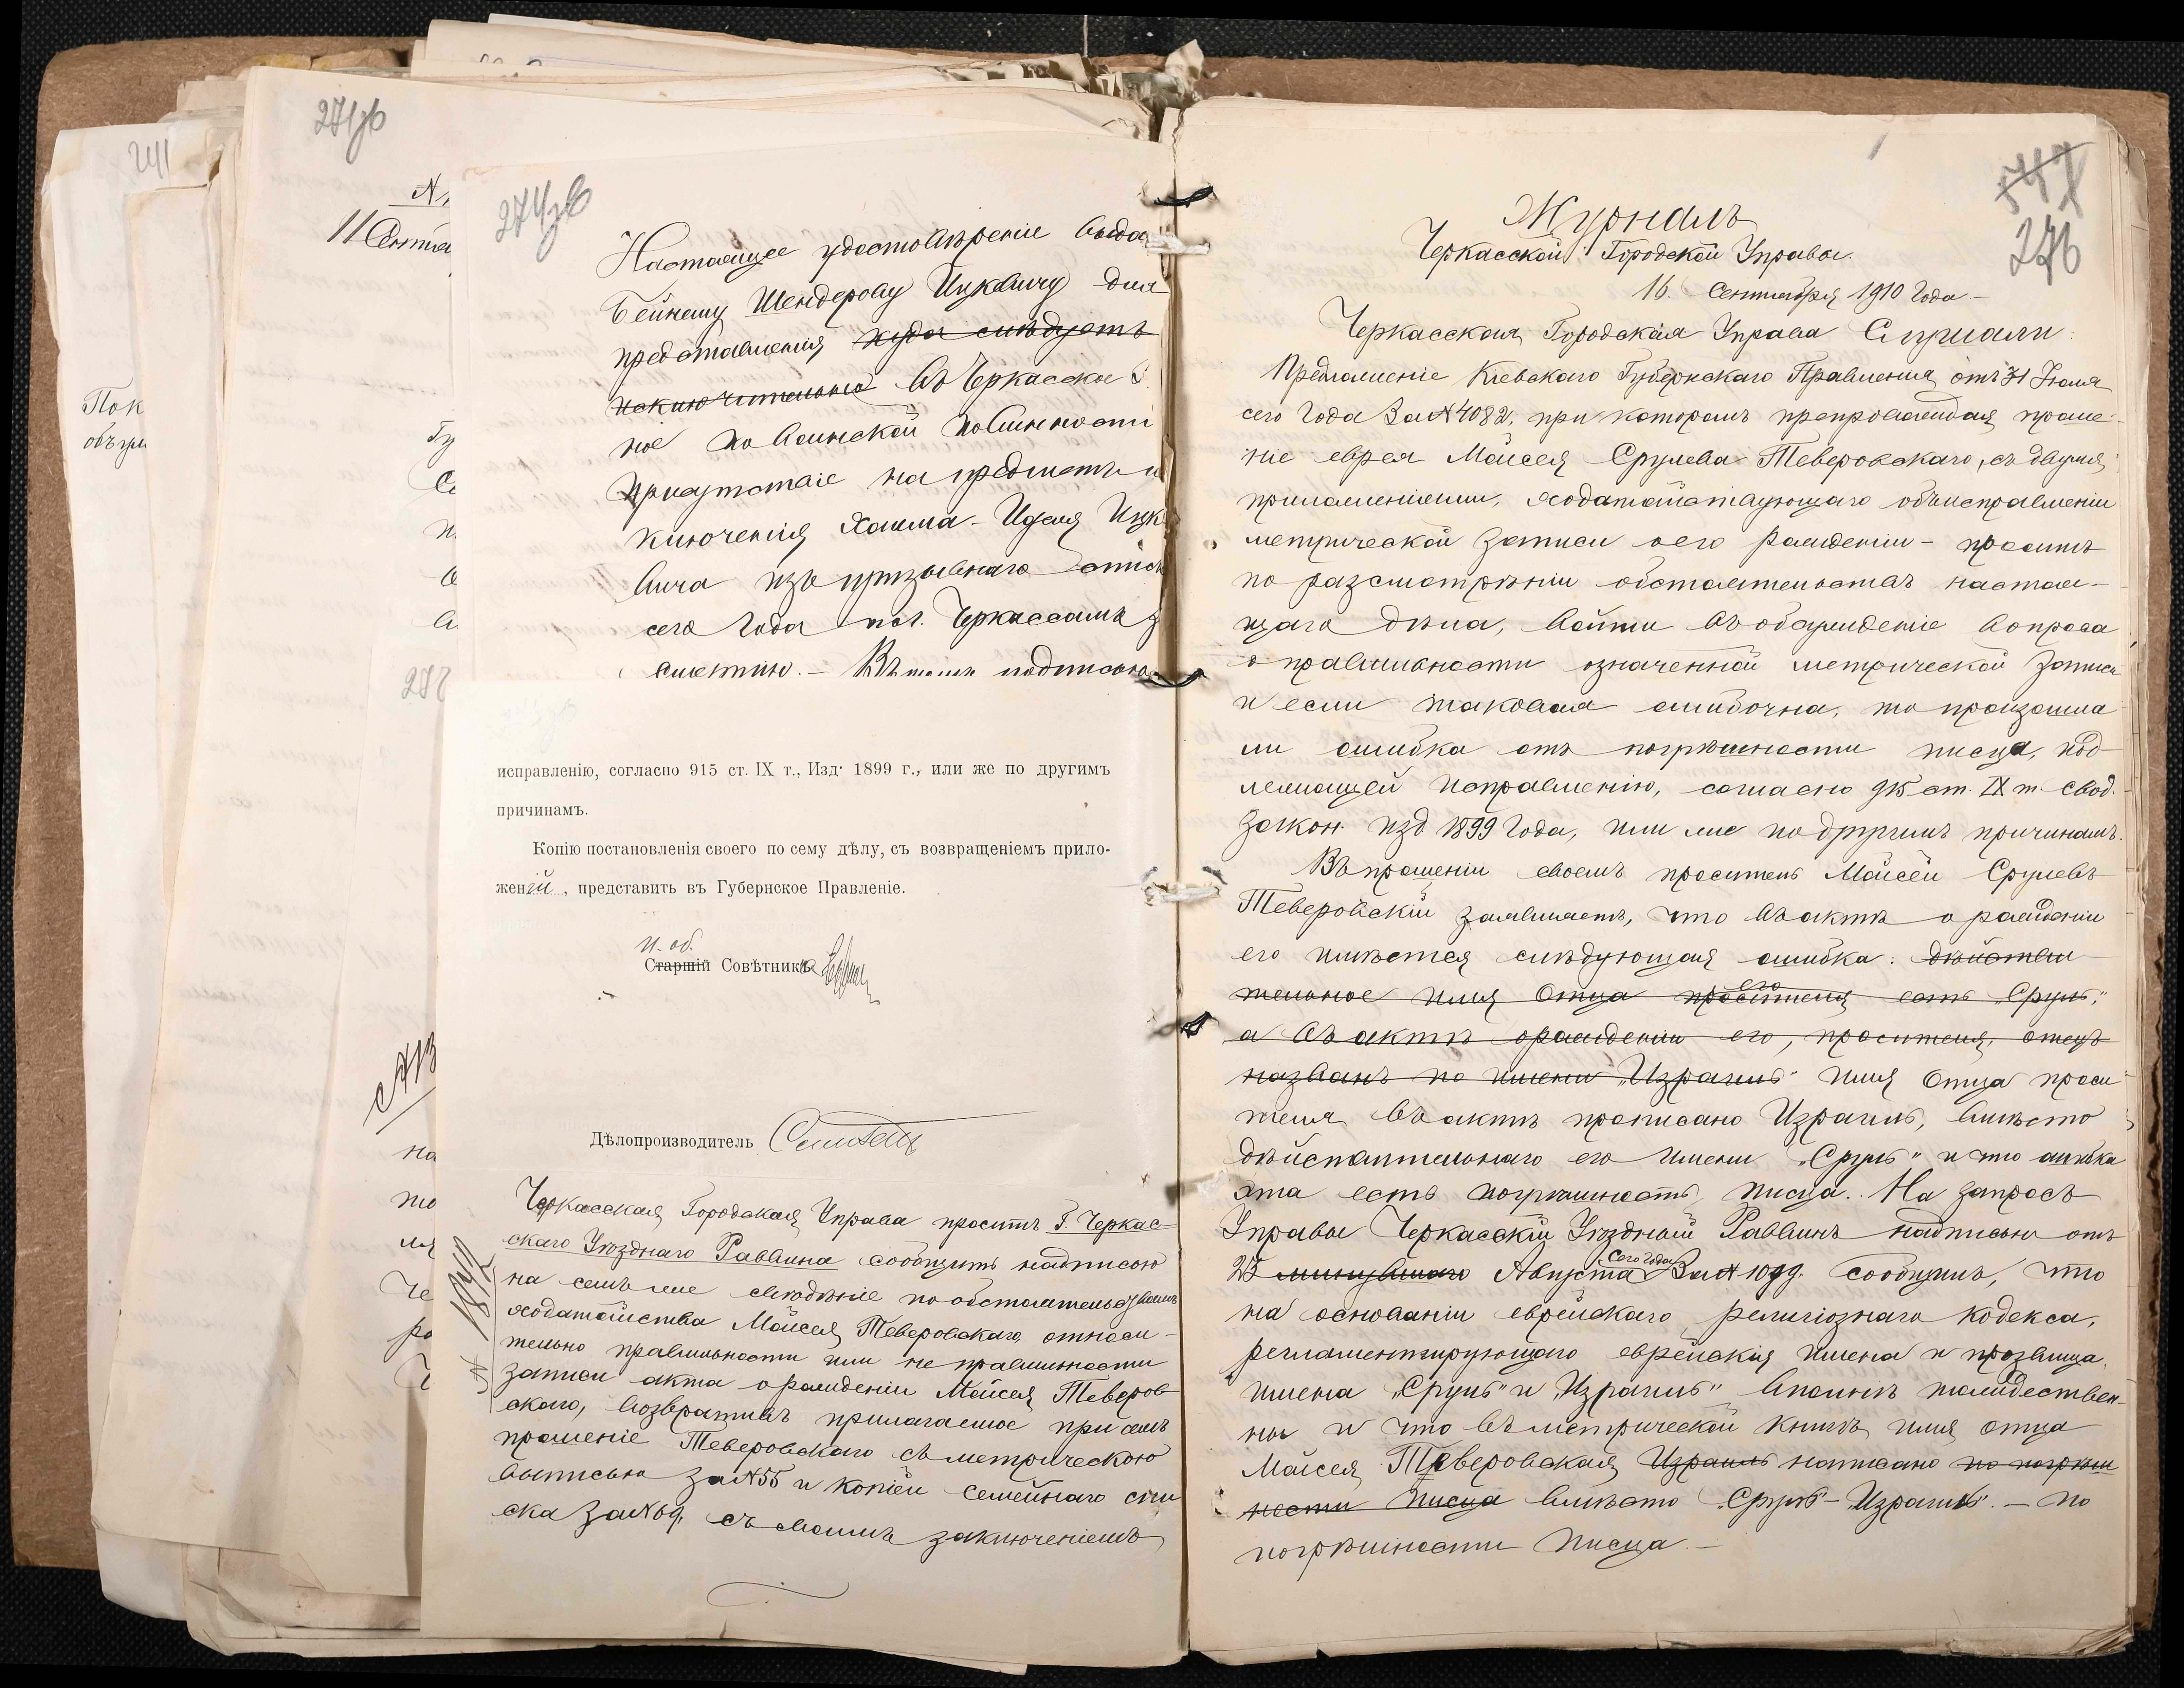 241
Пок
271 об
11 Сентя
274 об
Настоящее удостовѣреніе выда
Бейнешу Шендерову Ицковичу для
представленія куда слѣдуетъ
исключительно въ Черкасское
ное по воинской повинности
Присутствіе на предметъ и
ключенія Хаима-Иделя Ицк
вича изъ призывнаго списк
сего года по г. Черкассамъ з
смертію. - Въ томъ подписью
исправленію, согласно 915 ст. IX т., Изд. 1899 г., или же по другимъ
причинамъ.
Копію постановленія своего по сему дѣлу, съ возвращеніемъ прило-
женій, представить въ Губернское Правленіе.
И. об.
Старшій Совѣтника
Дѣлопроизводитель
Черкасская Городская Управа проситъ Г. Черкас-
скаго Уѣзднаго Раввина сообщить надписью
на семъ же свѣдѣніе по обстоятельствамъ
ходатайства Мойсея Теверовскаго, относи-
тельно правильности или не правильности
записи акта о рожденіи Мойсея Теверов-
скаго, возвративъ прилагаемое при семъ
прошеніе Теверовскаго съ метрическою
выписью за №55 и копіей семейнаго спи
ска за №69, съ своимъ заключеніемъ
547
276
Журналъ
Черкасской Городской Управы.
16. Сентября 1910 года. -
Черкасская Городская Управа Слушали:
Предложеніе Кіевскаго Губернскаго Правленія отъ 31 Іюля
сего года за №4082, при которомъ препровождая проше-
ніе еврея Мойсея Срулева Теверовскаго, съ двумя
приложеніями, ходатайствующаго объ исправленіи
метрической записи о его рожденіи - проситъ
по разсмотрѣніи обстоятельствъ настоя-
щаго дѣла, войти въ обсужденіе вопроса
о правильности означенной метрической записи
и если таковая ошибочна, то произошла
ли ошибка отъ погрѣшности писца, под-
лежащей исправленію, согласно 915 ст. IX т. Свод.
Закон. изд 1899 года, или же по другимъ причинамъ.
Въ прошеніи своемъ проситель Мойсей Срулевъ
Теверовскій заявляетъ, что въ актѣ о рожденіи
его имѣется слѣдующая ошибка: дѣйстви
его
тельное имя Отца просителя есть „Сруль",
а въ актѣ о рожденіи его, просителя, отецъ
названъ по имени „Израиль" имя Отца проси
теля въ актѣ прописано Израиль, вмѣсто
дѣйствительнаго его имени „Сруль" и что ошибка
эта есть погрѣшность писца. На запросъ
Управы Черкасскій Уѣздный Раввинъ надписью отъ
сего года
25 минувшаго Августа за № 1099. сообщилъ, что
на основаніи еврейскаго религіознаго кодекса,
регламентирующаго еврейскія имена и прозвища,
имена „Сруль" и „Израиль" вполнѣ тождествен-
ны и что въ метрической книгѣ имя отца
Мойсея Теверовская Израиль написано по погрѣш
ности писца вмѣсто „Сруль - Израиль". - по
погрѣшности писца. -